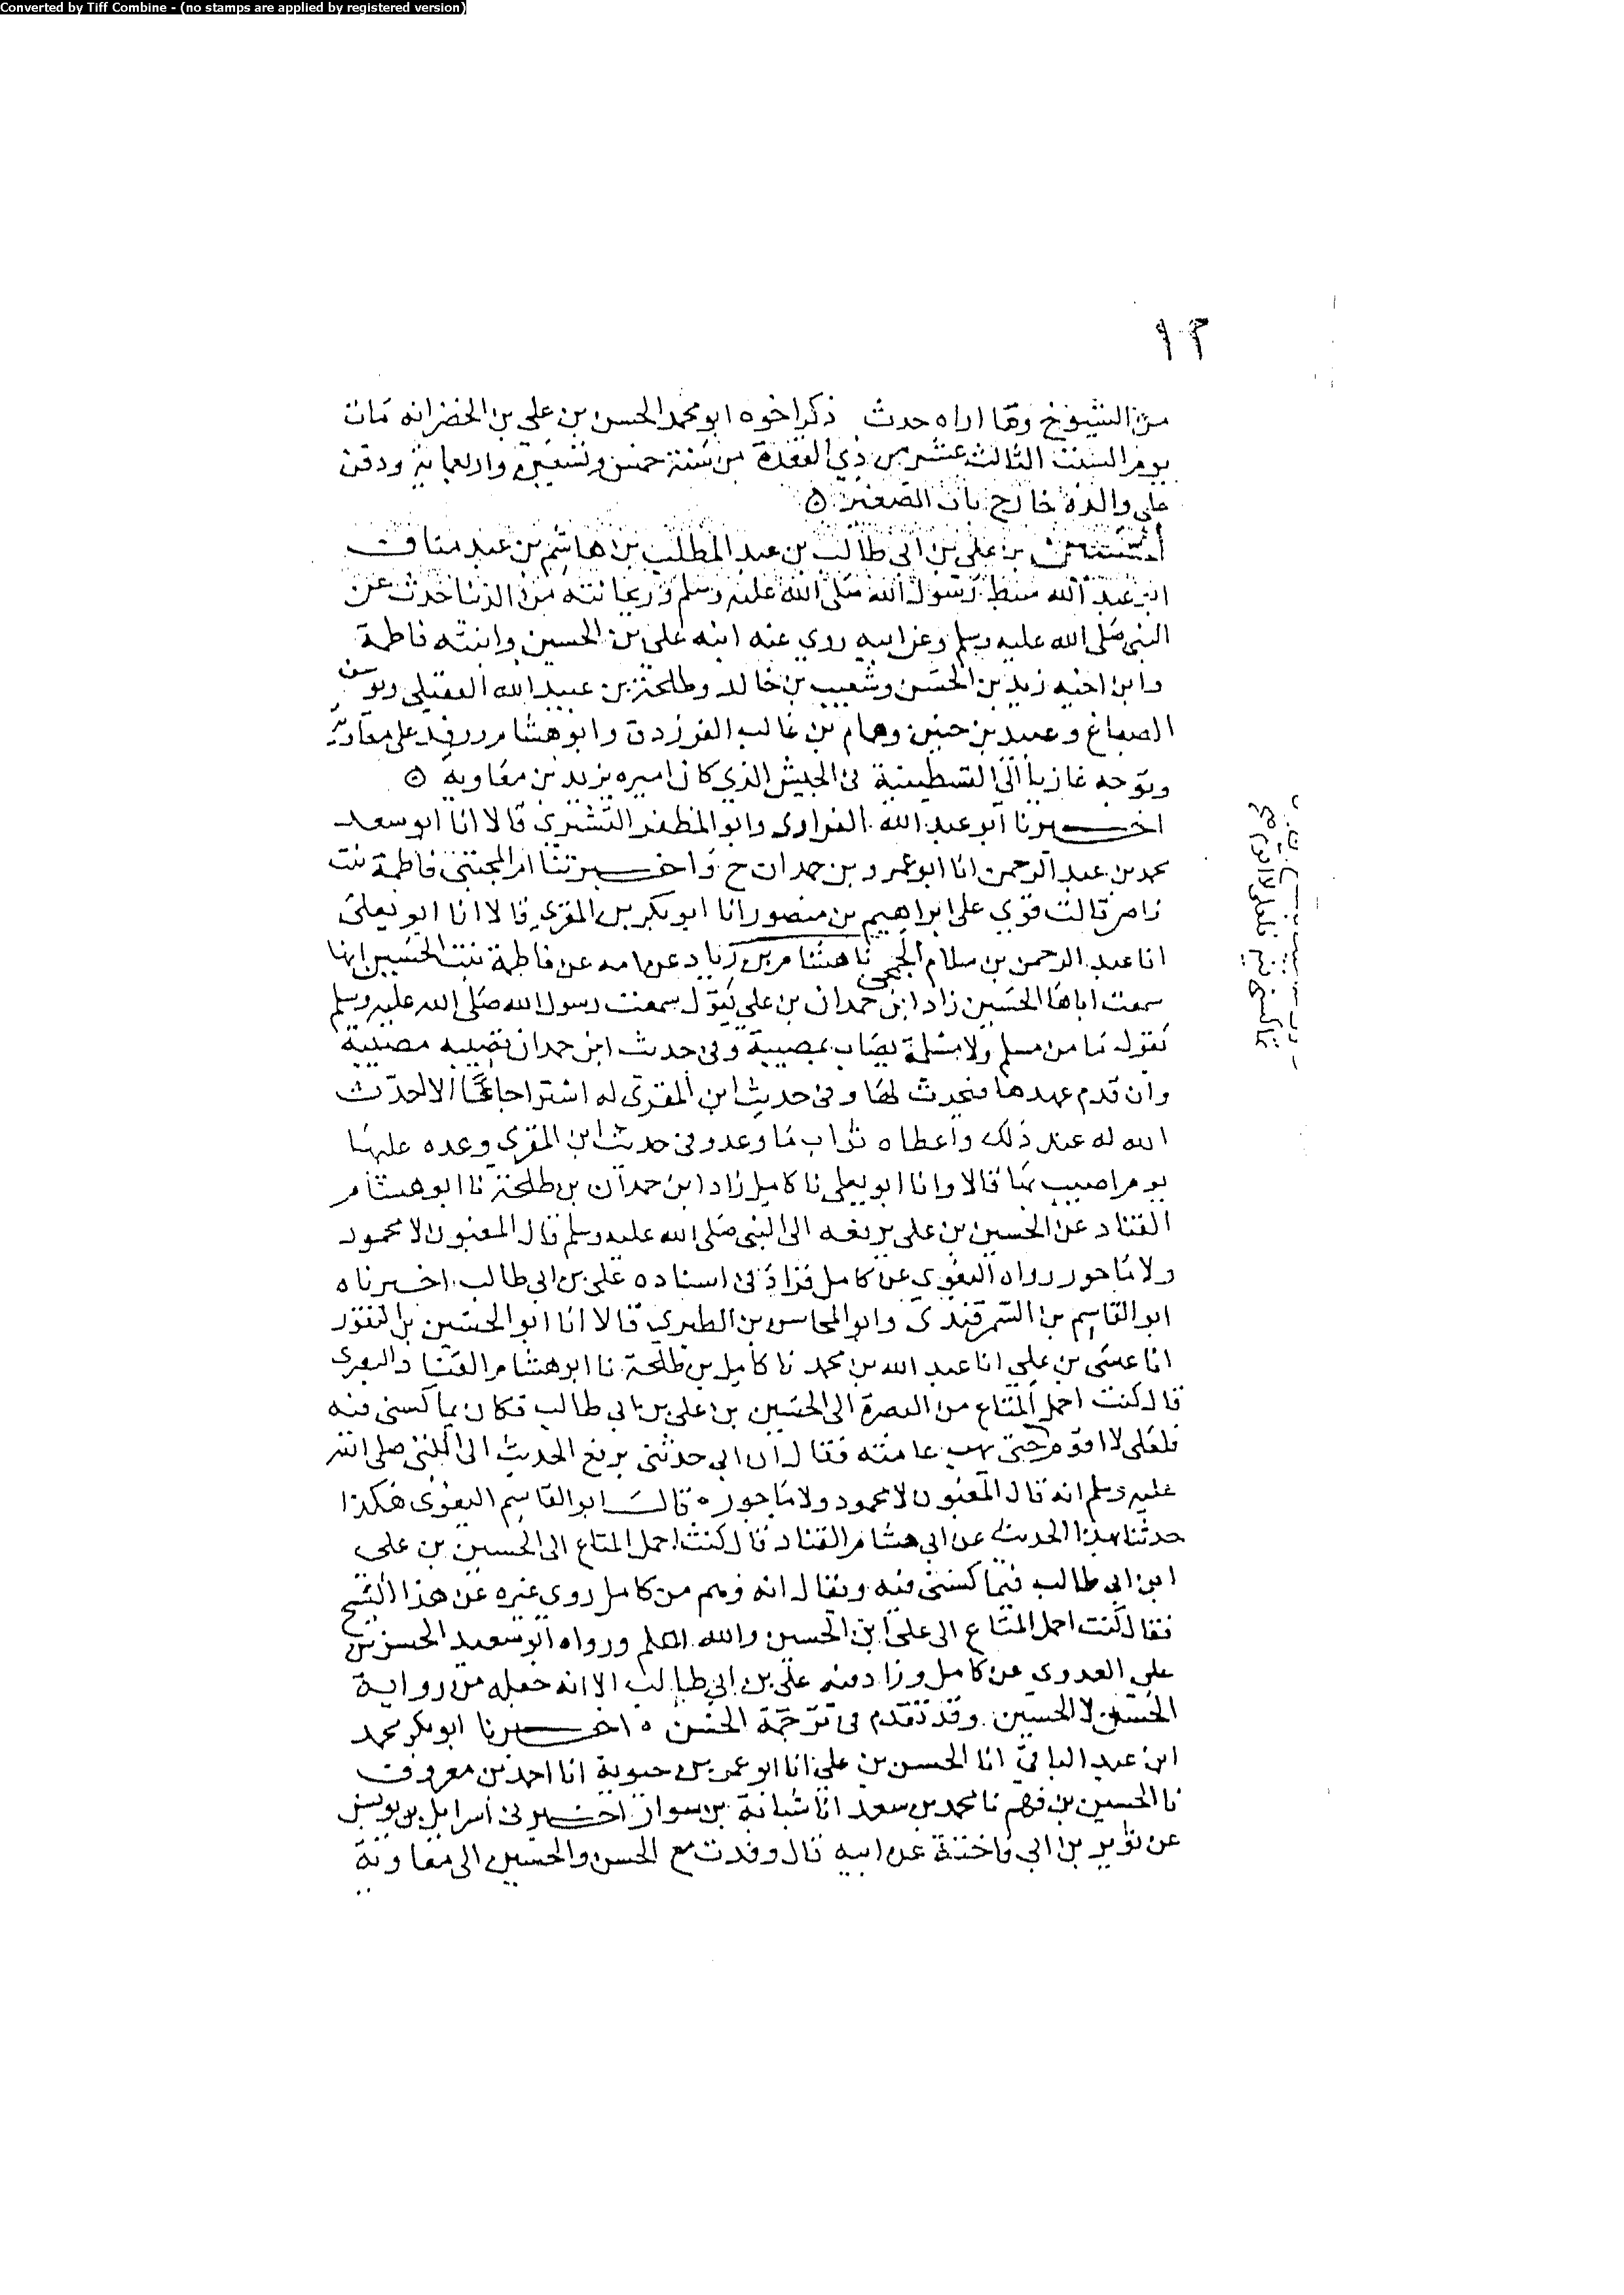 Converted by Tiff Combine - (no stamps are applied by registered version)
١٣
من الشيوخ وما اراه حدث ذكر اخوه ابو محمد الحسن بن علي بن الخضر انه مات
يوم السبت الثالث عشر من ذي القعدة من سنة خمس وتسعين واربعماية ودفن
على والده خارج باب الصغير ه
الحسين بن علي بن ابي طالب بن عبد المطلب بن هاشم بن عبد مناف
ابو عبد الله سبط رسول الله صلى الله عليه وسلم وريحانته من الدنيا حدث عن
النبي صلى الله عليه وسلم وعن ابيه روى عنه ابنه علي بن الحسين وابنته فاطمة
وابن اخيه زيد بن الحسن وشعيب بن خالد وطلحة بن عبيد الله العقيلي ويوسف
الصباغ وعبيد بن حنين وهمام بن غالب الفرزدق وابو هشام ووفد على معاوية
وتوجه غازيا الى القسطنطينية في الجيش الذي كان اميره يزيد بن معاوية ه
اخبرنا ابو عبد الله الفراوي وابو المظفر القشيري قالا انا ابو سعد
محمد بن عبد الرحمن انا ابو عمرو بن حمدان ح واخبرتنا ام المجتبى فاطمة بنت
ناصر قالت قرئ على ابراهيم بن منصور انا ابو بكر بن المقرئ قالا انا ابو يعلى
انا عبد الرحمن بن سلام الجمحي نا هشام بن زياد عن امه عن فاطمة بنت الحسين انها
سمعت اباها الحسين زاد ابن حمدان بن علي يقول سمعت رسول الله صلى الله عليه وسلم
يقول ما من مسلم ولا مسلمة يصاب بمصيبة وفي حديث ابن حمدان تصيبه مصيبة
وان قدم عهدها فيحدث لها وفي حديث ابن المقرئ له استرجاعا الا احدث
الله له عند ذلك واعطاه ثواب ما وعد وفي حديث ابن المقرئ وعده عليها
يوم اصيب بها قالا وانا ابو يعلى نا كامل زاد ابن حمدان بن طلحة نا ابو هشام
القناد عن الحسين بن علي يرفعه الى النبي صلى الله عليه وسلم قال المغبون لا محمود
ولا ماجور رواه البغوي عن كامل فزاد في اسناده علي بن ابي طالب اخبرناه
ابو القاسم بن السمرقندي وابو المحاسن بن الطبري قالا انا ابو الحسين بن النقور
انا عيسى بن علي انا عبد الله بن محمد نا كامل بن طلحة نا ابو هشام القناد البصري
قال كنت احمل المتاع من البصرة الى الحسين بن علي بن ابي طالب فكان يماكسني فيه
فلعلي لا اقوم حتى يهب عامته فقال ان ابي حدثني يرفع الحديث الى النبي صلى الله
عليه وسلم انه قال المغبون لا محمود ولا ماجور ه قال ابو القاسم البغوي هكذا
حدثنا بهذا الحديث عن ابي هشام القناد قال كنت احمل المتاع الى الحسين بن علي
ابن ابي طالب فيماكسني فيه ويقال انه وهم من كامل روى غيره عن هذا الشيخ
فقال كنت احمل المتاع الى علي ابن الحسين والله اعلم ورواه ابو سعيد الحسن بن
علي العدوي عن كامل وزاد فيه علي بن ابي طالب الا انه جعله من رواية
الحسن لا الحسين وقد تقدم في ترجمة الحسن ه اخبرنا ابو بكر محمد
ابن عبد الباقي انا الحسن بن علي انا ابو عمر بن حيوية انا احمد بن معروف
نا الحسين بن فهم نا محمد بن سعد انا شبابة بن سوار اخبرني اسرايل بن يونس
عن ثوير بن ابي فاختة عن ابيه قال وفدت مع الحسن والحسين الى معاوية